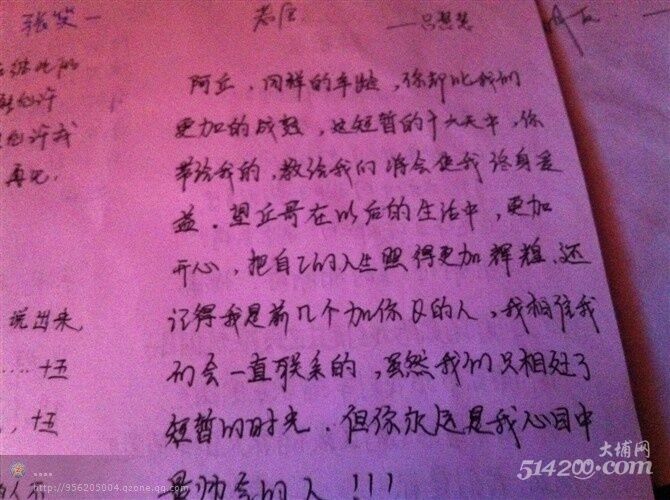 张笑一
老庄
——吕慧慧
允许
允许我
再见.
阿丘，同样的年龄，你却比我们
更加的成熟，这短暂的十六天中，你
带给我的，教给我们将会使我终身受
益．望丘哥在以后的生活中，更加
开心，把自己的人生照得更加辉煌．还
记得我是前几个加你的人，我相信我
们会一直联系的，虽然我们只相处了
短暂的时光．但你永远是我心目中
最帅气的人!!!
说出来
....十五
，十五
....
http://956205004.qzone.qq.com
大埔网
514200.com